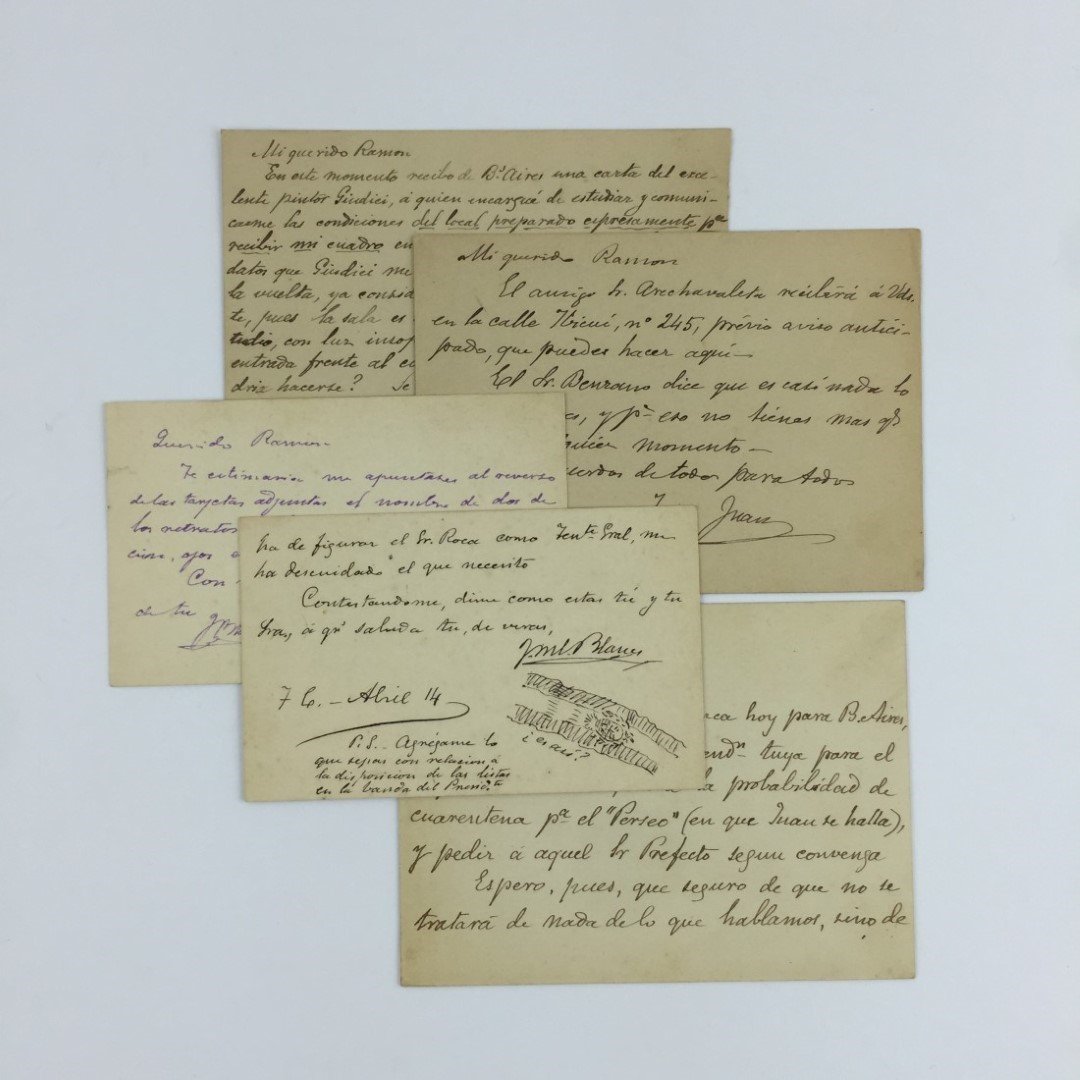 Mi querido Ramon
En este momento recibo de Bs Aires una carta del exce-
lente pintor Giudici, á quien encargué de estudiar y comuni-
carme las condiciones del local preparado espresamente pa
recibir mi cuadro en
datos que Giudici me
la vuelta, ya consid
te, pues la sala es
tudio, con luz insof
entrada frente al cu
dria hacerse? Se
Mi querido Ramon
El amigo Sr. Arechavaleta recibirá á Vds.
en la calle Ibicuí, nº 245, prévio aviso antici-
pado, que puedes hacer aquí—
El Sr. Benzano dice que es casi nada lo
es, y pr eso no tienes mas qe
momento—
uerdos de todos para todos
Y Juan
Querido Ramon
Te estimaria me apuntases al reverso
de las tarjetas adjuntas el nombre de dos de
los retratos
cion, ojos
Con
de tu
ha de figurar el Sr. Roca como Tente Gral, me
ha descuidado el que necesito
Contestandome, dime como estas tú y tu
Sra, á qn saluda tu, de veras,
J. Ml. Blanes
7 C. — Abril 14
P.S. — Agrégame lo
que sepas con relacion á
la disposicion de las listas
en la banda del Presidte
¿es así?
hoy para Bs Aires,
endn tuya para el
la probabilidad de
cuarentena pa el "Perseo" (en que Juan se halla),
y pedir á aquel Sr Prefecto segun convenga
Espero, pues, que seguro de que no se
tratará de nada de lo que hablamos, sino de